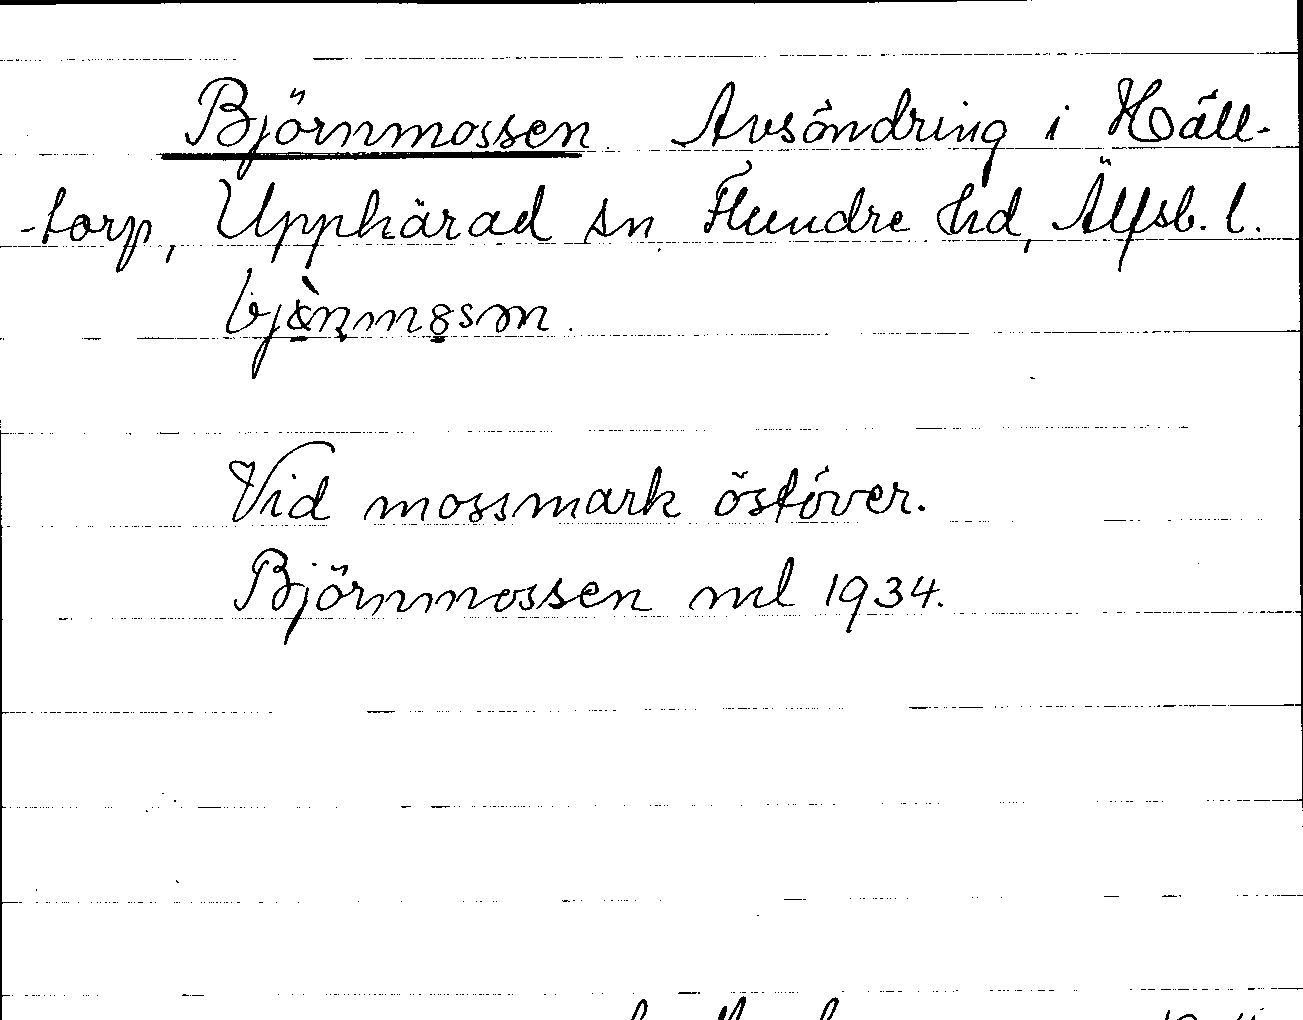 Björnmossen Avsöndring i Häll-
-torp, Upphärad sn. Flundre hd, Älfsb. l.
Vid mossmark östöver.
Björnmossen ml 1934.